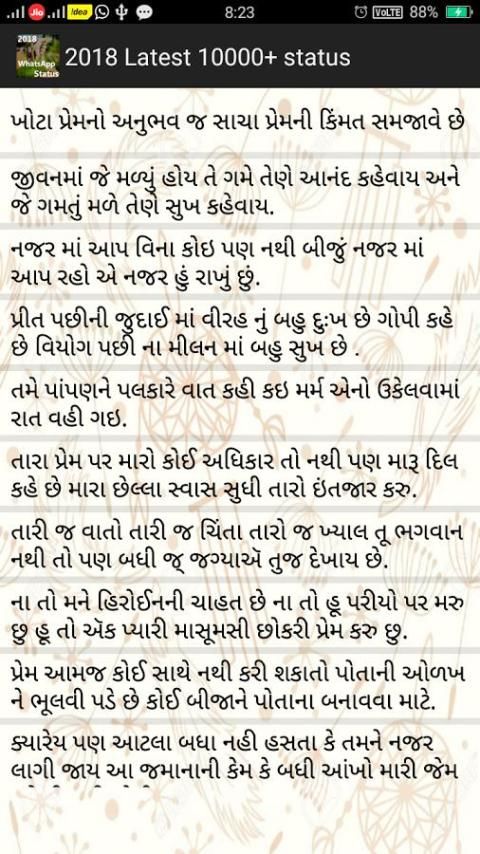 8:23
88%
Jio
!dea
VoLTE
2018
WhatsApp
Status
2018 Latest 10000+ status
ખોટા પ્રેમનો અનુભવ જ સાચા પ્રેમની કિંમત સમજાવે છે
જીવનમાં જે મળ્યું હોય તે ગમે તેણે આનંદ કહેવાય અને
જે ગમતું મળે તેણે સુખ કહેવાય.
નજર માં આપ વિના કોઇ પણ નથી બીજું નજર માં
આપ રહો એ નજર હું રાખું છું.
પ્રીત પછીની જુદાઈ માં વીરહ નું બહુ દુઃખ છે ગોપી કહે
છે વિયોગ પછી ના મીલન માં બહુ સુખ છે .
તમે પાંપણને પલકારે વાત કહી કઇ મર્મ એનો ઉકેલવામાં
રાત વહી ગઇ.
તારા પ્રેમ પર મારો કોઈ અધિકાર તો નથી પણ મારૂ દિલ
કહે છે મારા છેલ્લા સ્વાસ સુધી તારો ઇંતજાર કરુ.
તારી જ વાતો તારી જ ચિંતા તારો જ ખ્યાલ તૂ ભગવાન
નથી તો પણ બધી જ્ જગ્યાઍ તુજ દેખાય છે.
ના તો મને હિરોઈનની ચાહત છે ના તો હૂ પરીયો પર મરુ
છુ હૂ તો ઍક પ્યારી માસૂમસી છોકરી પ્રેમ કરુ છુ.
પ્રેમ આમજ કોઈ સાથે નથી કરી શકાતો પોતાની ઓળખ
ને ભૂલવી પડે છે કોઈ બીજાને પોતાના બનાવવા માટે.
ક્યારેય પણ આટલા બધા નહી હસતા કે તમને નજર
લાગી જાય આ જમાનાની કેમ કે બધી આંખો મારી જેમ